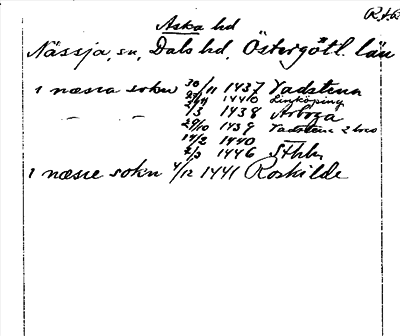 R.A.
Aska hd
Nässja, sn, Dals hd, Östergötl. län
i næsia sokn 30/11 1437 Vadstena
1440 Linköping
— — 1/3 1438 Arboga
29/10 1439 Vadstena
14/2 1440
2/3 1446 Sthlm
i næsie sokn 4/12 1441 Roskilde